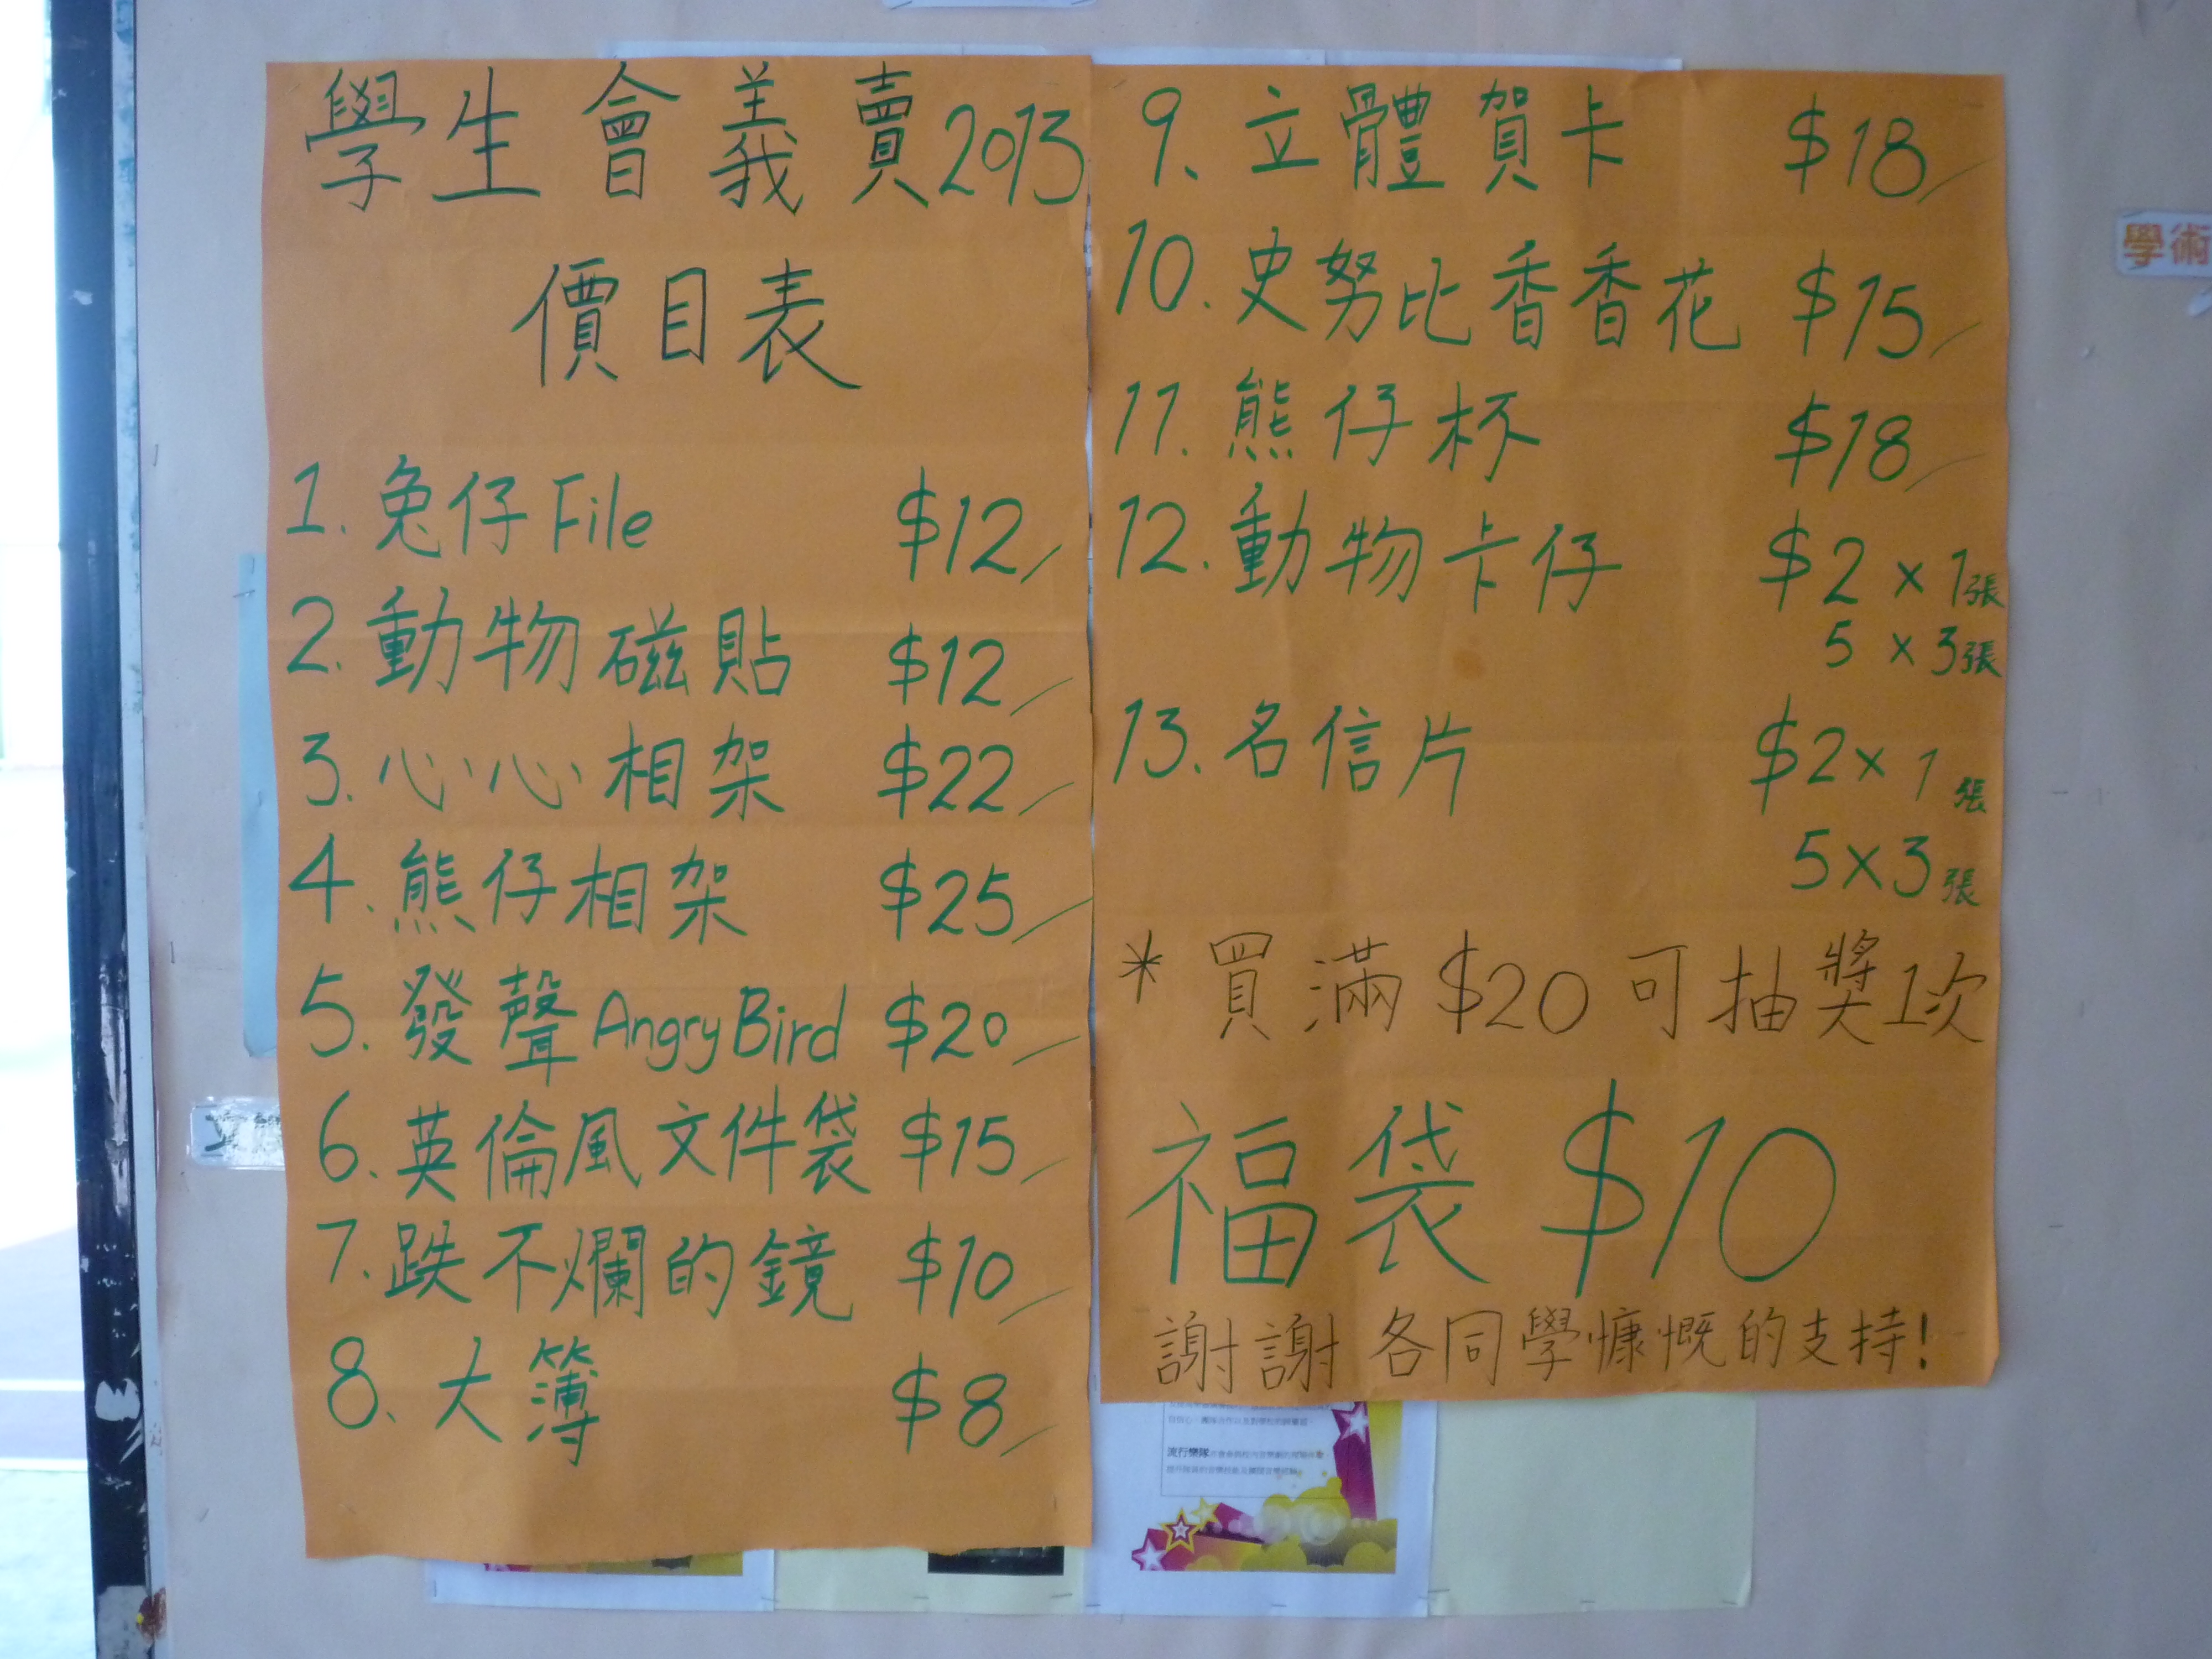 學生會義賣2013
價目表
1. 兔仔File $12
2. 動物磁貼 $12
3. 心心相架 $22
4. 熊仔相架 $25
5. 發聲Angry Bird $20
6. 英倫風文件袋 $15
7. 跌不爛的鏡 $10
8. 大簿 $8
9. 立體賀卡 $18
10. 史努比香香花 $15
11. 熊仔杯 $18
12. 動物卡仔 $2 x 1張
5 x 3張
13. 名信片 $2 x 1張
5 x 3張
* 買滿 $20 可抽獎1次
福袋 $10
謝謝各同學慷慨的支持!
學術
流行樂隊